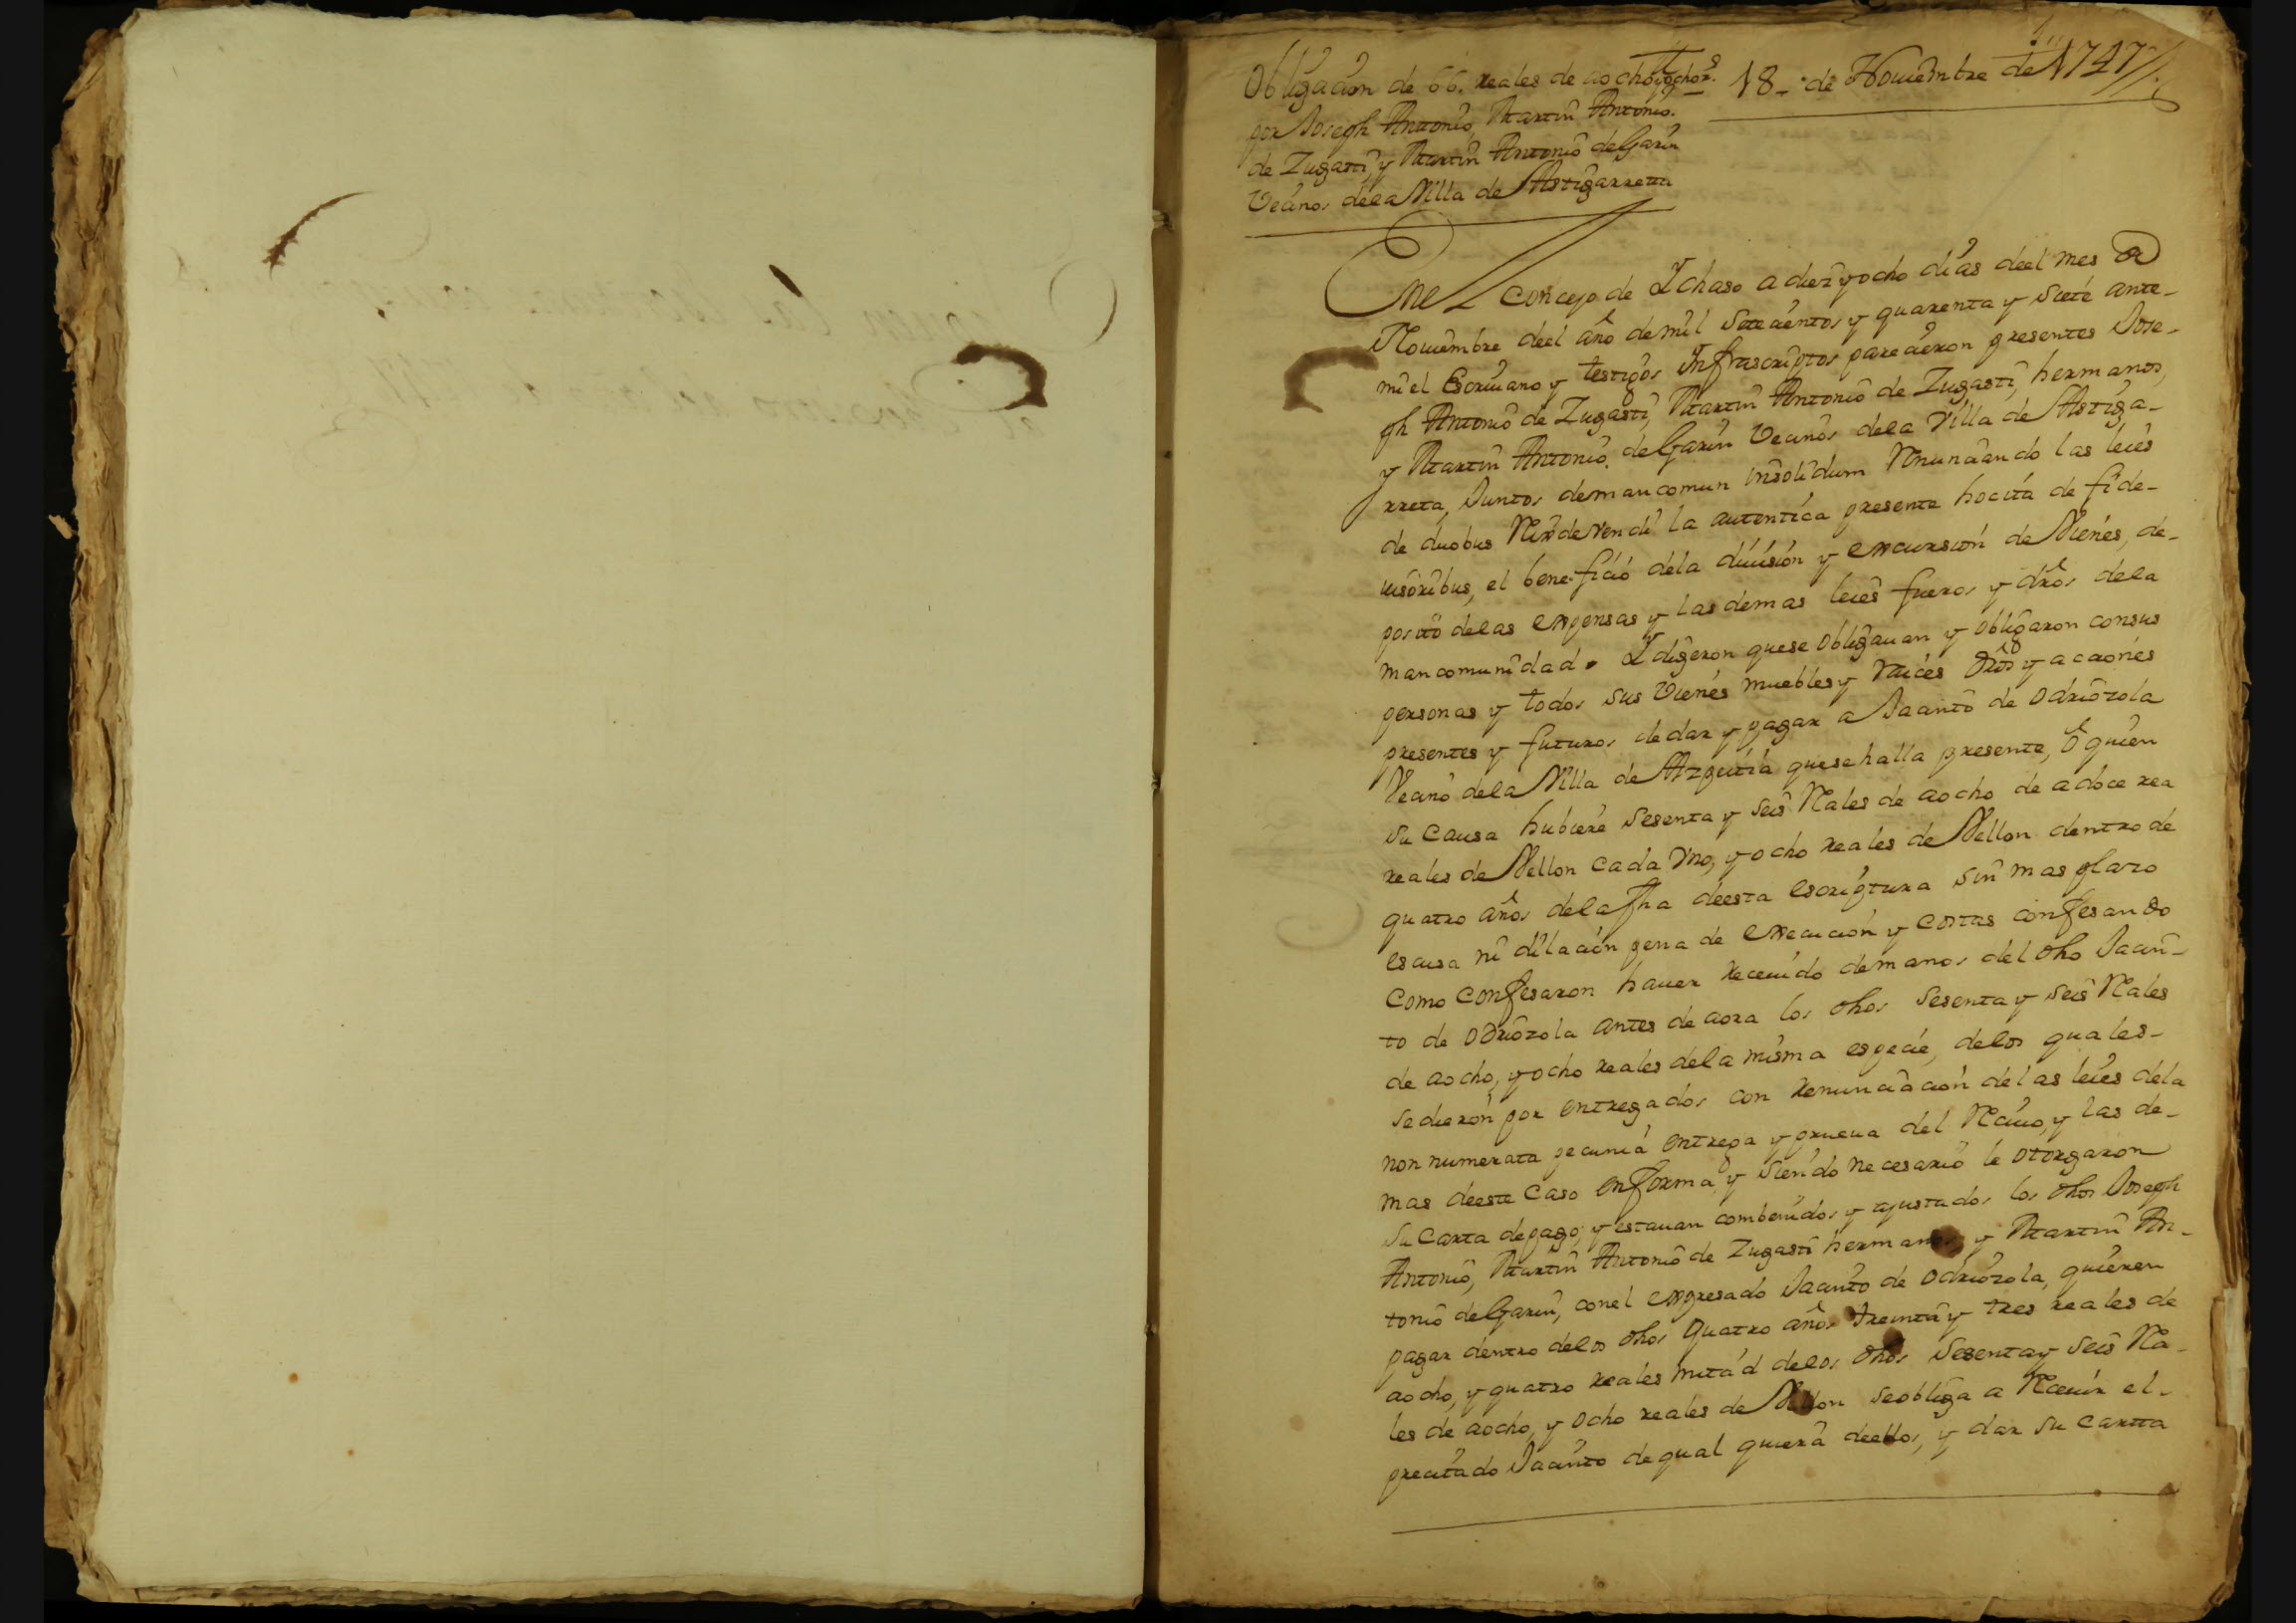 Obligaçión de 66. reales de aocho, y ocho rs.
por Joseph Antonio, Martin Antonio
de Zugasti, y Martin Antonio de Garin
Veçinos dela Villa de Astigarreta
18 - de Nouiembre de 1747//.
Enel Conçejo de Ychaso a diez y ocho días deel mes de
Nouiembre deel año de mil Seteçientos y quarenta y Siete ante-
mi el Escriuano y testigos Infrascriptos pareçieron presentes Jose-
ph Antonio de Zugasti, Martin Antonio de Zugasti, hermanos,
y Martin Antonio de Garin Veçinos dela Villa de Astiga-
rreta, Juntos demancomun insolidum Renunçiando las leies
de duobus Reix devendi la autentica presente hocita de fide-
iusoribus, el benefiçio dela diuisión y excursión de Vienes, de-
posito delas expensas y las demas leies fueros y dros dela
mancomunidad. Y digeron quese obligauan y obligaron consus
personas y todos sus Vienes muebles y Raices dros y acciones
presentes y futuros de dar y pagar a Jaçinto de Odriozola
Veçino dela Villa de Azpeitia quese halla presente, ô quien
su Causa hubiere Sesenta y Seis Reales de aocho de adoce rea
reales de Vellon cada Vno, y ocho reales de Vellon dentro de
quatro años dela fha deesta escriptura sin mas plazo
escusa ni dilaçión pena de execuçión y costas confesando
como confesaron hauer reçeuido demanos del dho Jaçin-
to de Odriozola antes de aora los dhos Sesenta y Seis Reales
de aocho, y ocho reales dela misma espeçie, delos quales-
sedieron por entregados con renunçiaçión delas leies dela
non numerata pecunia entrega y prueua del Reçiuo, y las de-
mas deeste Caso enforma, y Siendo neçesario le otorgaron
Su Carta depago; y estauan combenidos y ajustados los dhos Joseph
Antonio, Martin Antonio de Zugasti hermanos, y Martin An-
tonio de Garin, conel expresado Jaçinto de Odriozola, quieren
pagar dentro delos dhos quatro años treinta y tres reales de
aocho, y quatro reales mitad delos dhos Sesenta y Seis Rea-
les de aocho, y ocho reales de Vellon se obliga a Reçeuir el-
preçitado Jaçinto de qual quiera deellos, y dar su cartta